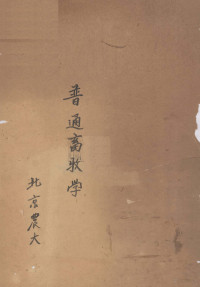 普通畜牧学
北京農大